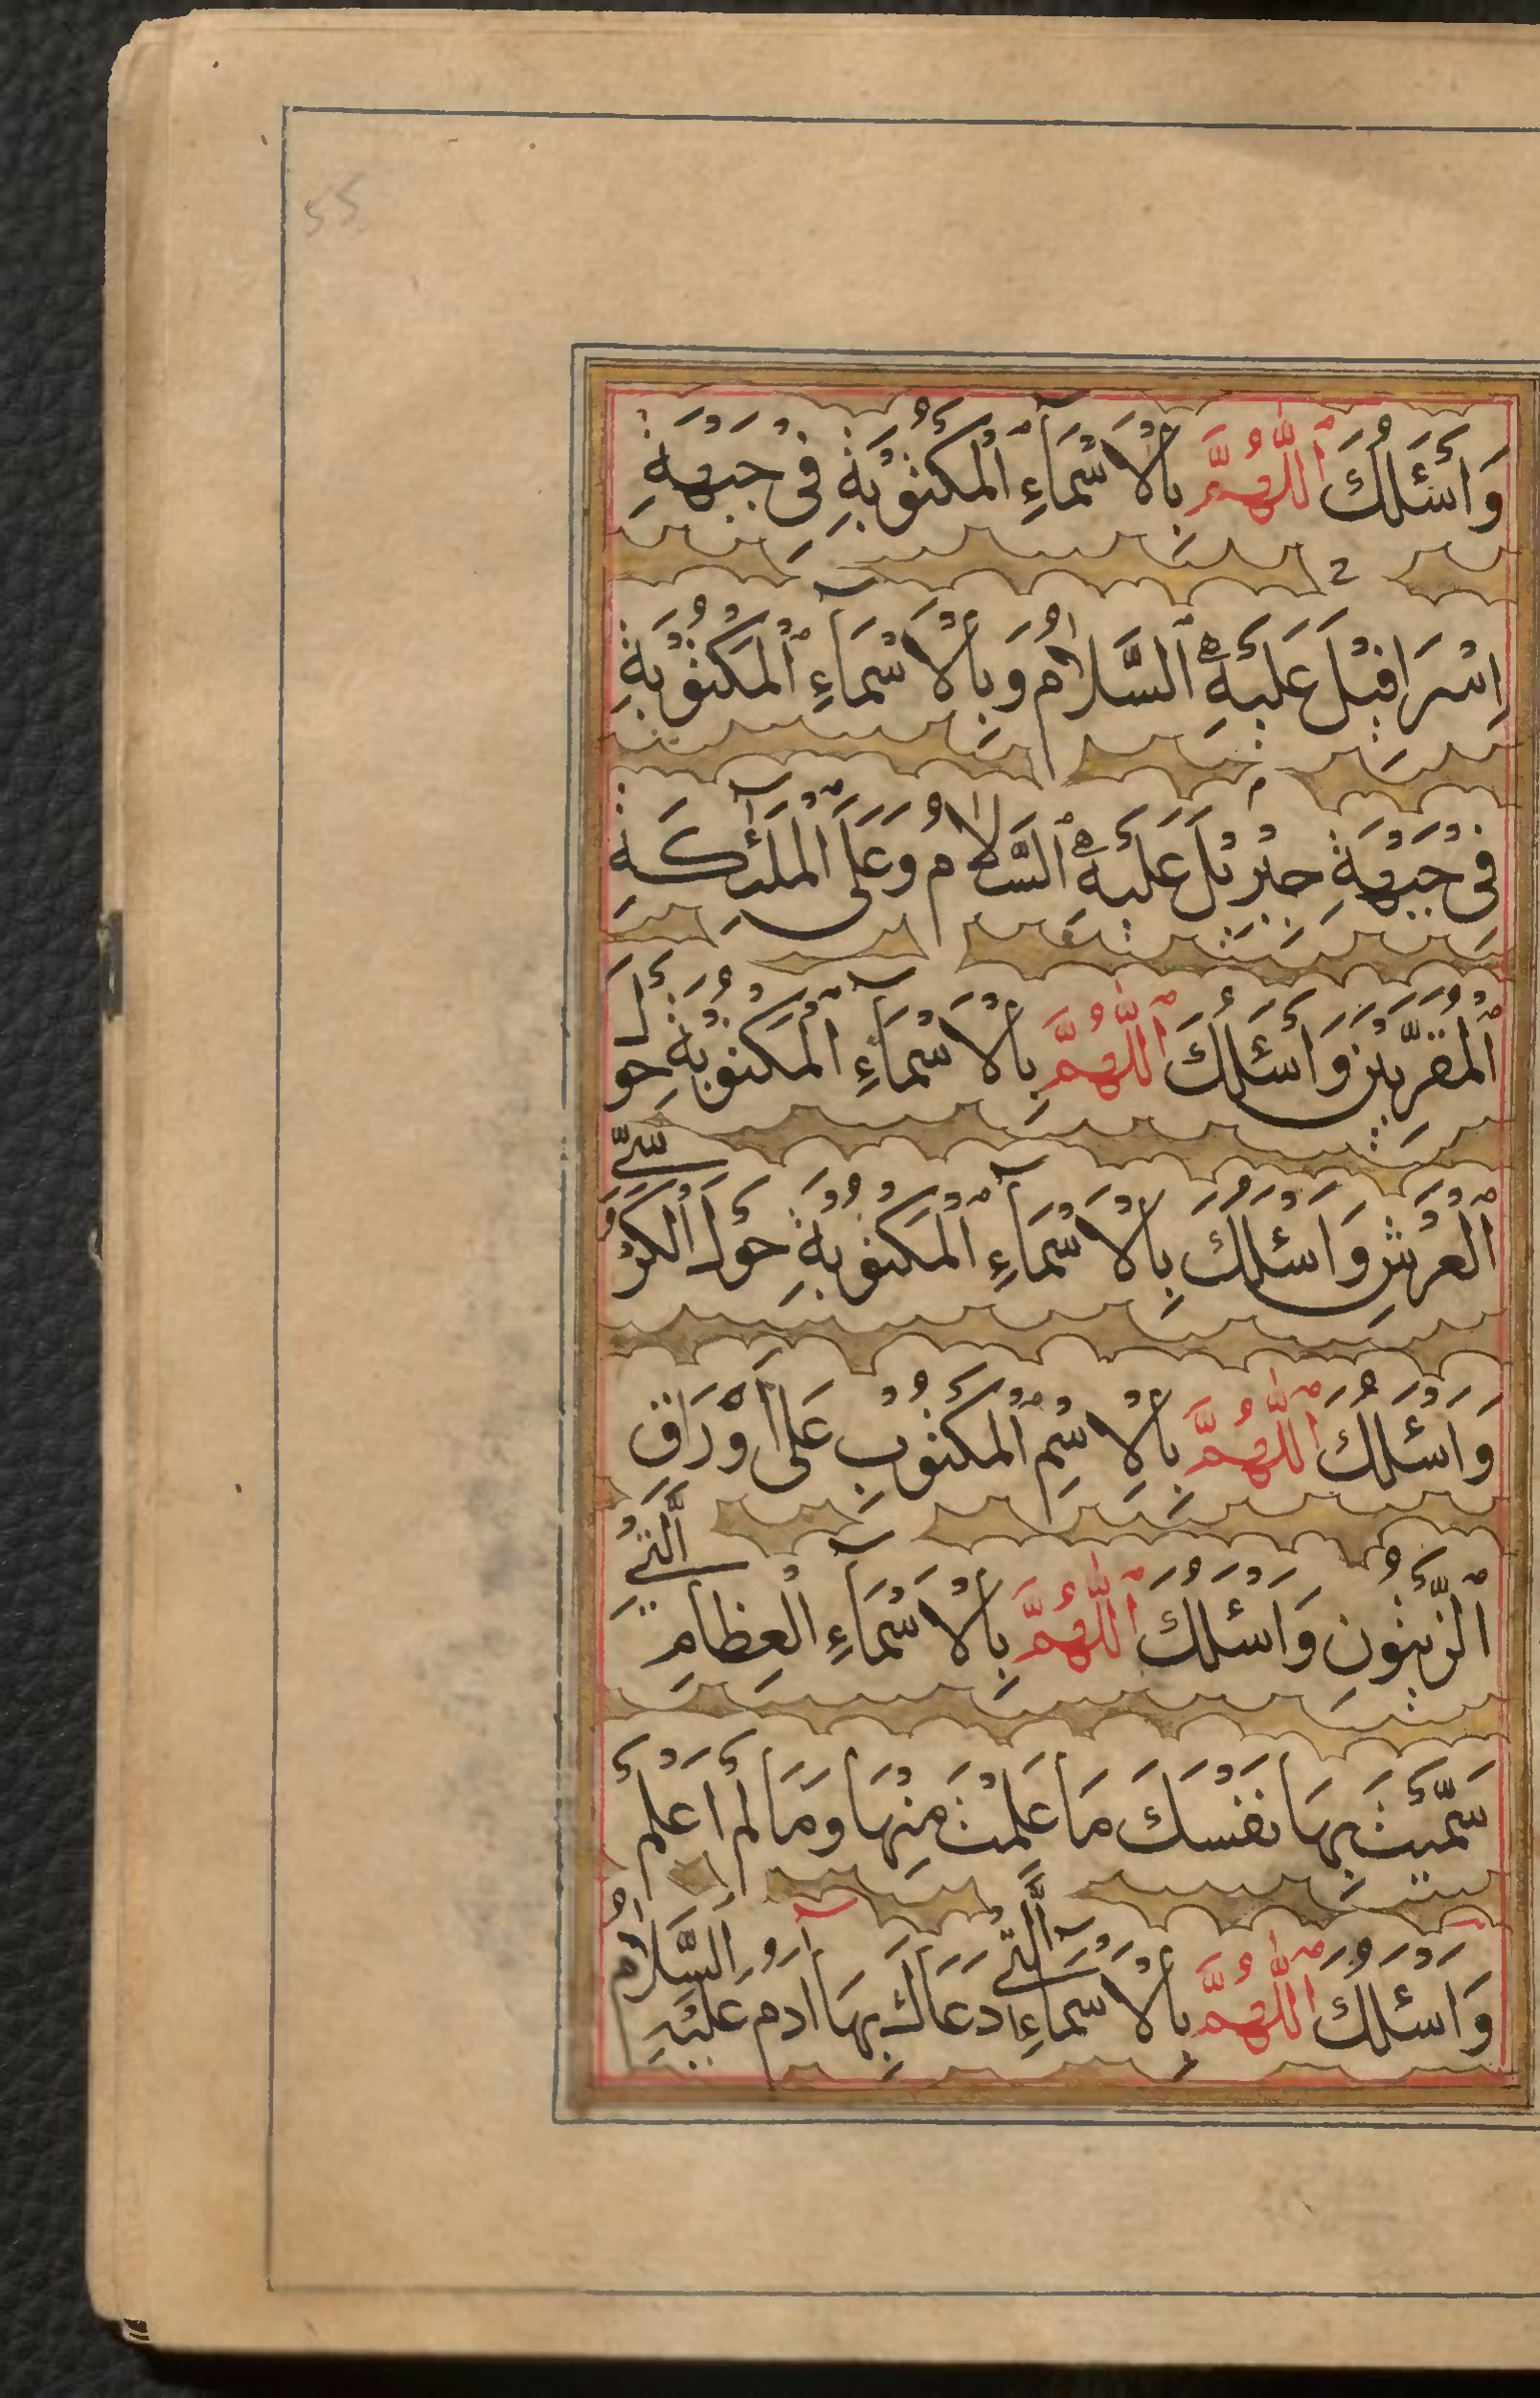 55
وَاَسْئَلُكَ اللّٰهُمَّ بِالْاَسْمَآءِ الْمَكْتُوْبَةِ فِيْ جَبْهَةِ
اِسْرَافِيْلَ عَلَيْهِ السَّلَامُ وَبِالْاَسْمَآءِ الْمَكْتُوْبَةِ
فِيْ جَبْهَةِ جِبْرِيْلَ عَلَيْهِ السَّلَامُ وَعَلَى الْمَلٰٓئِكَةِ
الْمُقَرَّبِيْنَ وَاَسْئَلُكَ اللّٰهُمَّ بِالْاَسْمَآءِ الْمَكْتُوْبَةِ حَوْلَ
الْعَرْشِ وَاَسْئَلُكَ بِالْاَسْمَآءِ الْمَكْتُوْبَةِ حَوْلَ الْكُرْسِيِّ
وَاَسْئَلُكَ اللّٰهُمَّ بِالْاِسْمِ الْمَكْتُوْبِ عَلٰى اَوْرَاقِ
الزَّيْتُوْنِ وَاَسْئَلُكَ اللّٰهُمَّ بِالْاَسْمَآءِ الْعِظَامِ الَّتِيْ
سَمَّيْتَ بِهَا نَفْسَكَ مَا عَلِمْتُ مِنْهَا وَمَا لَمْ اَعْلَمْ
وَاَسْئَلُكَ اللّٰهُمَّ بِالْاَسْمَآءِ الَّتِيْ دَعَاكَ بِهَا اٰدَمُ عَلَيْهِ السَّلَامُ